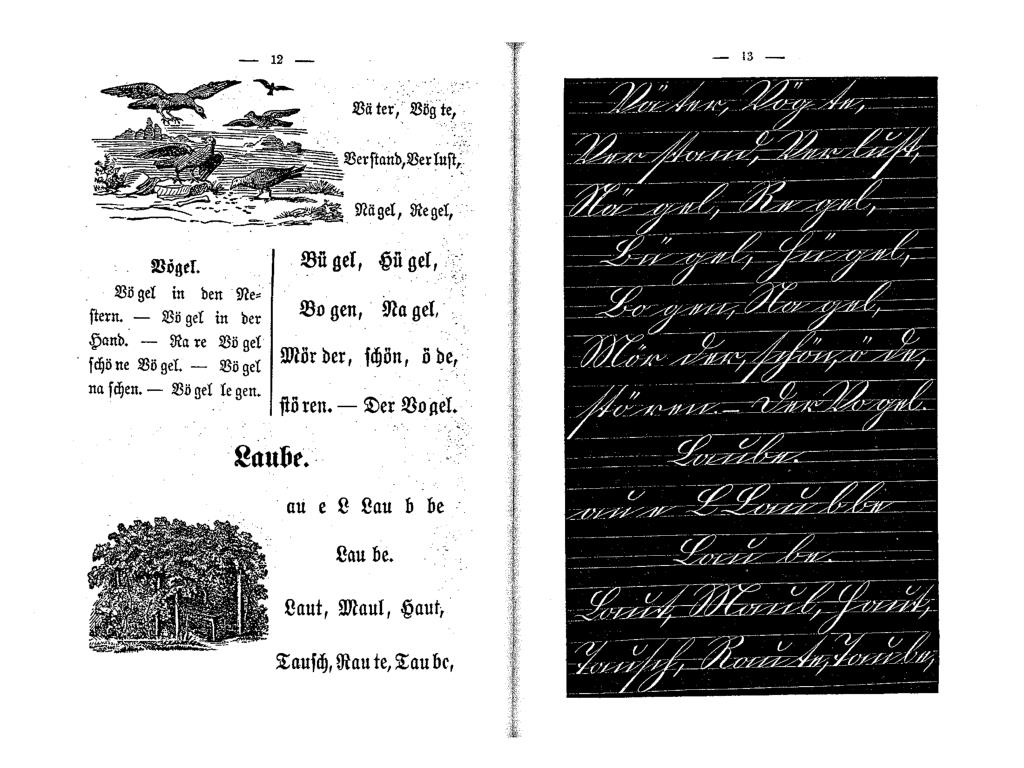 — 12 —
Vä ter, Vög te,
Ver stand, Ver lust,
Nä gel, Re gel,
Vögel.
Vö gel in den Ne⸗
stern. — Vö gel in der
Hand. — Ra re Vö gel
schö ne Vö gel. — Vö gel
na schen. — Vö gel le gen.
Bü gel, Hü gel,
Bo gen, Na gel,
Mör der, schön, ö de,
stö ren. — Der Vo gel.
Laube.
au e L Lau b be
Lau be.
Laut, Maul, Haut,
Tausch, Rau te, Tau be,
— 13 —
Vä ter, Vög te,
Ver stand, Ver lust,
Nä gel, Re gel,
Bü gel, Hü gel,
Bo gen, Na gel,
Mör der, schön, ö de,
stö ren. — Der Vo gel.
Laube.
au e L Lau b be
Lau be.
Laut, Maul, Haut,
Tausch, Rau te, Tau be,